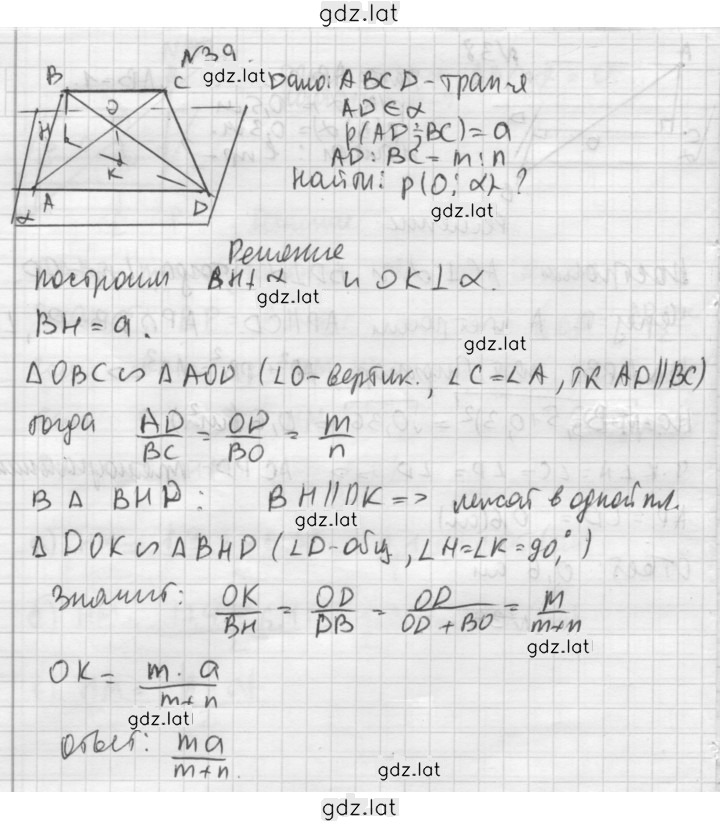 gdz.lat
N39.
gdz.lat
B C
O
H
K
A D
α
Дано: ABCD - трап-я
AD ∈ α
ρ(AD; BC) = a
AD : BC = m : n
Найти: ρ(O; α) - ?
gdz.lat
Решение
построим BH ⊥ α и OK ⊥ α.
gdz.lat
BH = a.
gdz.lat
Δ OBC ∽ Δ AOD (∠O - вертик., ∠C = ∠A, тк AD || BC)
тогда AD/BC = OD/BO = m/n
В Δ BHD: BH || OK => лежат в одной пл.
gdz.lat
Δ DOK ∽ Δ BHD (∠D - общ, ∠H = ∠K = 90°,)
Значит: OK/BH = OD/DB = OD/(OD + BO) = m/(m+n)
gdz.lat
OK = m · a/(m+n)
gdz.lat
ответ: ma/(m+n).
gdz.lat
gdz.lat